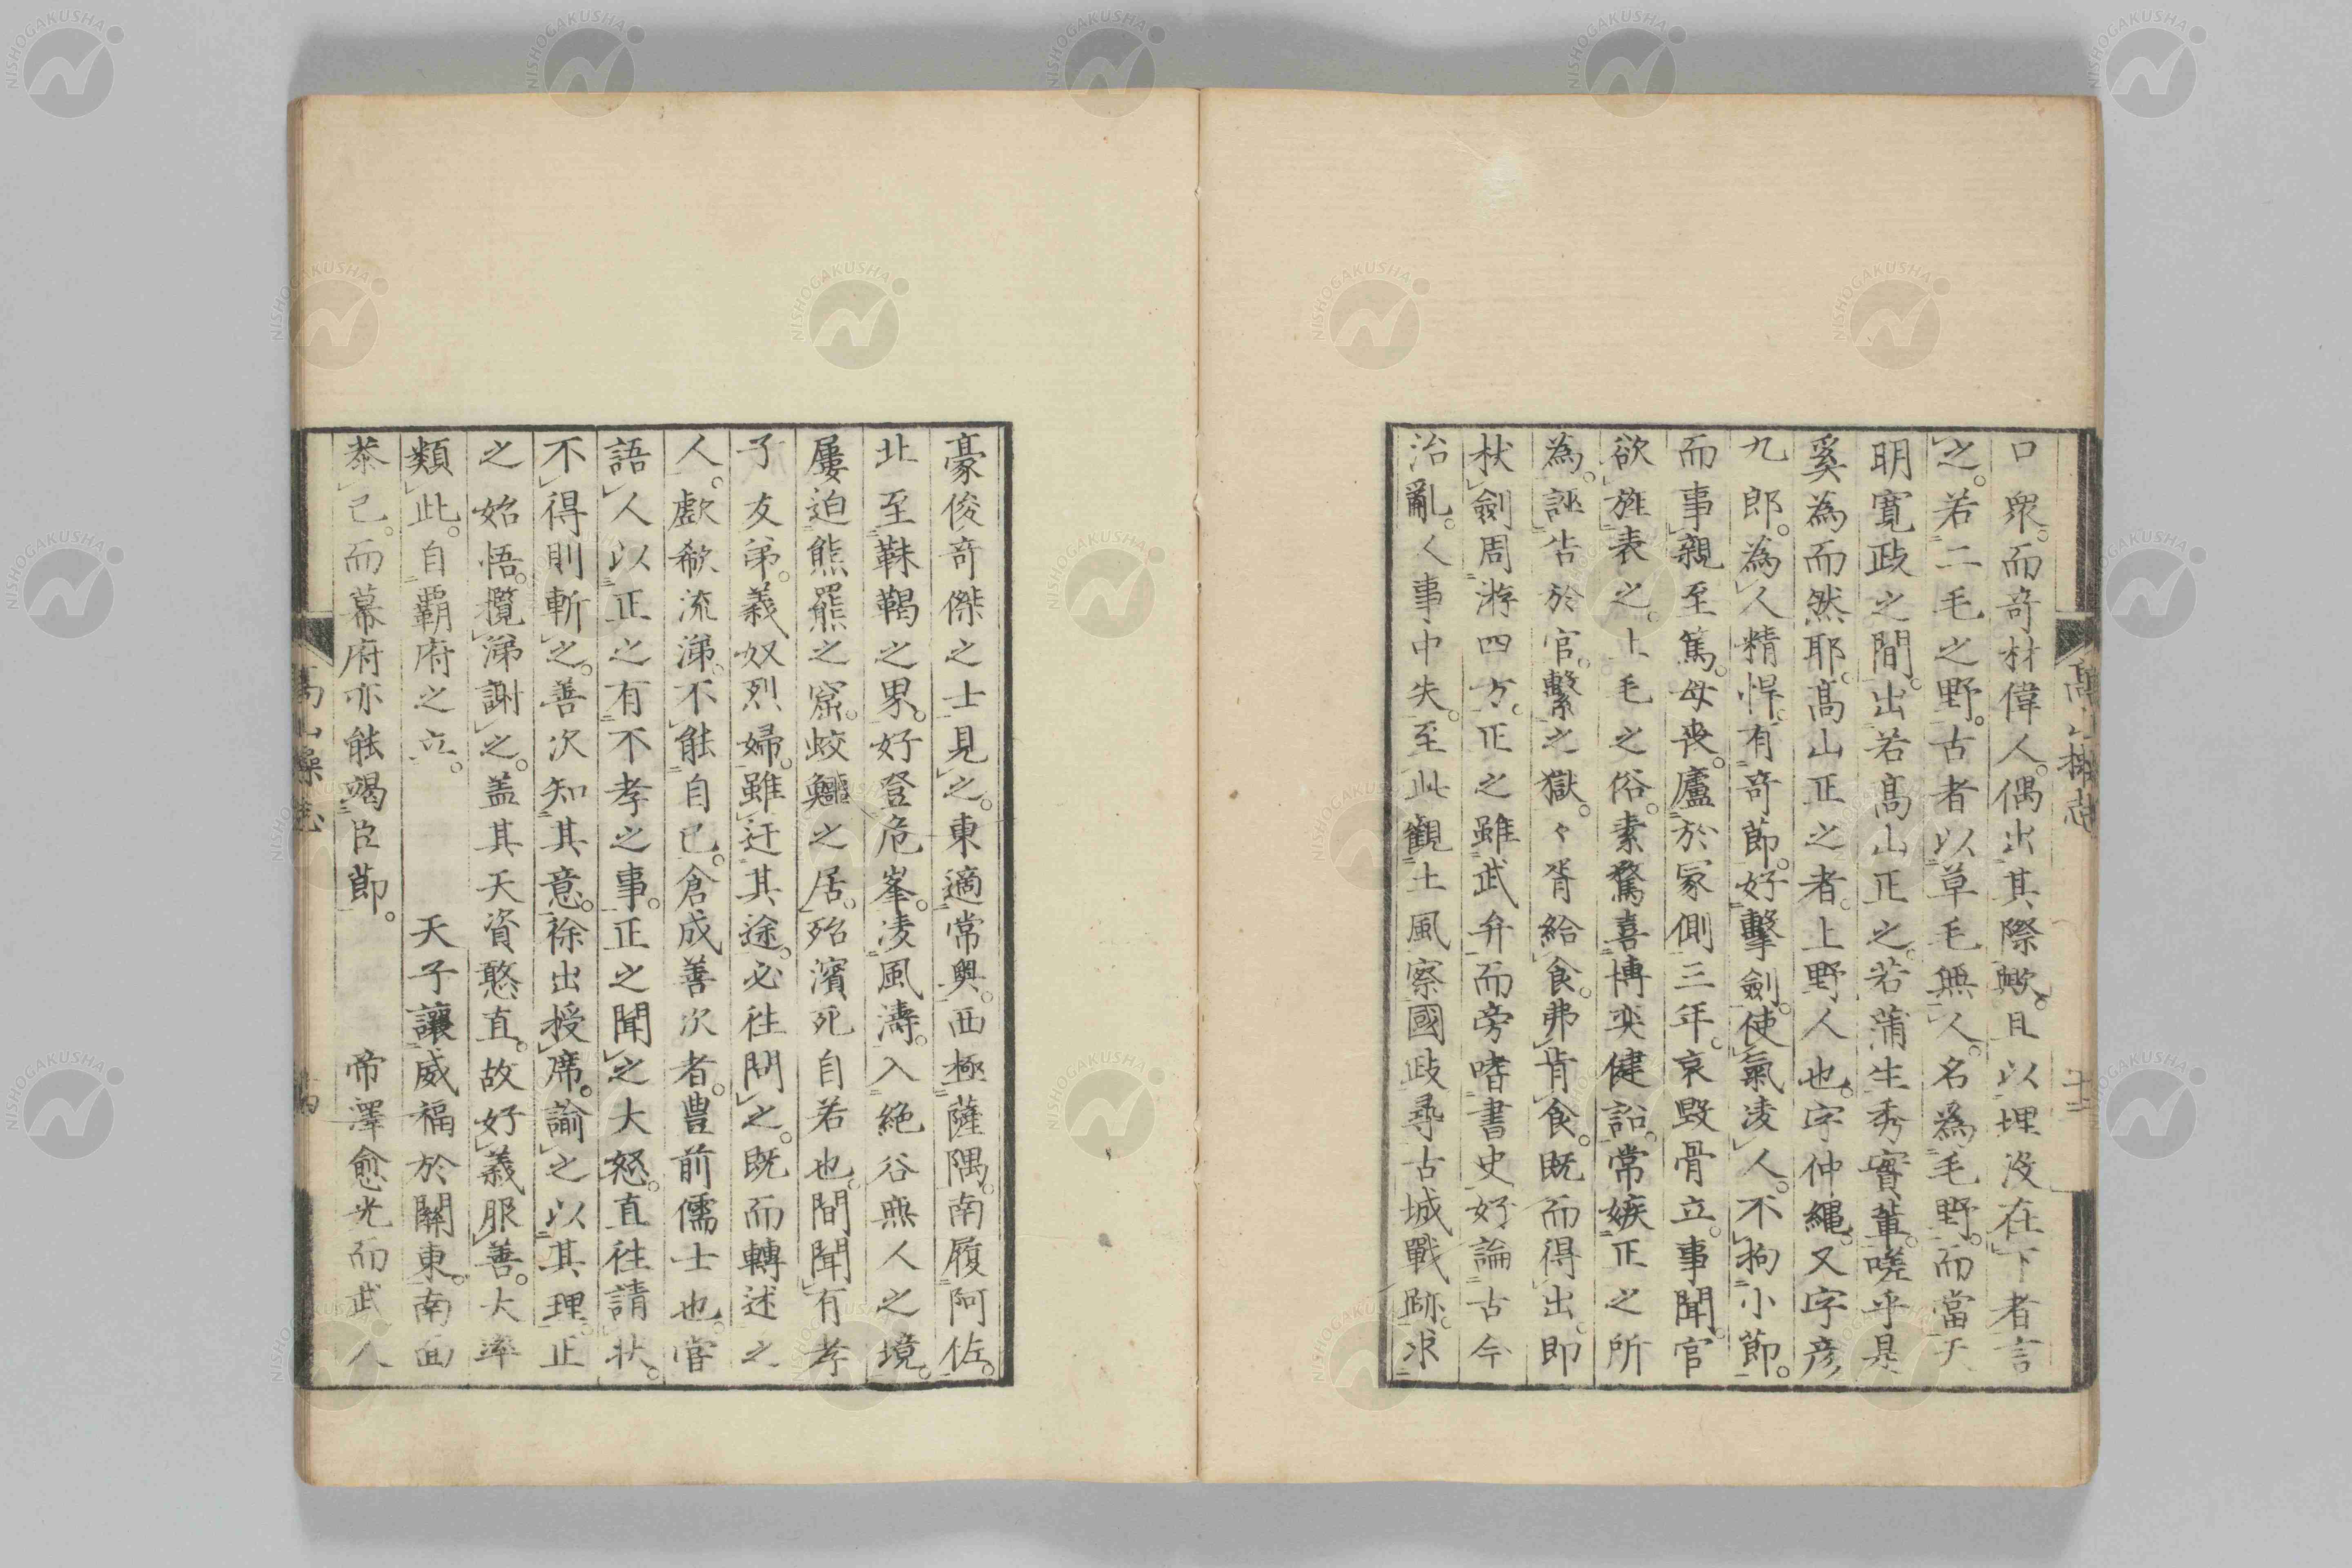 口衆。而奇材偉人。偶出其際歟。且以埋没在下者言
之。若二毛之野。古者以草毛無人。名為毛野。而當天
明寛政之間。出若髙山正之。若蒲生秀實輩。嗟乎是
奚為而然耶。髙山正之者。上野人也。字仲縄。又字彦
九郎。為人精悍。有奇節。好擊劍。使氣凌人。不拘小節。
而事親至篤。母喪。廬於冢側三年。哀毀骨立。事聞。官
欲旌表之。上毛之俗。素驁喜博奕健訟。常嫉正之所
為。誣告於官。繫之獄。々胥給食。弗肯食。既而得出。即
杖劍周游四方。正之雖武弁。而旁嗜書史。好論古今
治亂。人事中失。至此觀土風察國政尋古城戰跡。求
豪俊奇傑之士見之。東適常奧。西極薩隅。南履阿佐。
北至靺鞨之界。好登危峯。凌風濤。入絶谷無人之境。
屢迫熊羆之窟。蛟鱷之居。殆濱死自若也。間聞有孝
子友弟。義奴烈婦。雖迂其途。必往問之。既而轉述之
人。歔欷流涕。不能自已。倉成善次者。豊前儒士也。嘗
語人以正之有不孝之事。正之聞之大怒。直往請状。
不得則斬之。善次知其意。徐出授席。諭之以其理。正
之始悟。攬涕謝之。盖其天資憨直。故好義服善。大率
類此。自覇府之立。天子讓威福於關東。南面
恭己。而幕府亦能竭臣節。帝澤愈光而武人